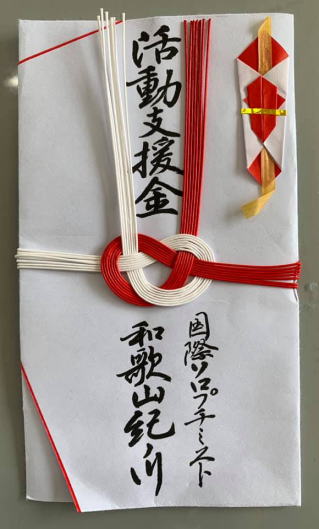 活動支援金
国際ソロプチミスト
和歌山紀ノ川